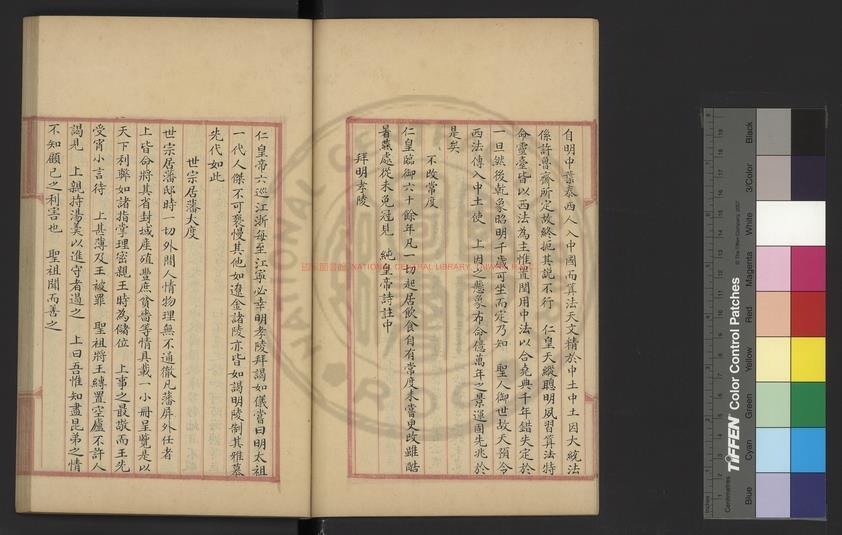 自明中葉泰西人入中國而算法天文精於中土中土因大統法
係許魯齋所定故終扼其說不行　仁皇天縱聰明夙習算法特
命靈臺皆以西法為主惟置閏用中法以合堯典千年錯失定於
一旦然後乾象昭明千歲可坐而定乃知　聖人御世故天預令
西法傳入中土使　上因之懸象布命億萬年之景運固先兆於
是矣
不改常度
仁皇臨御六十餘年凡一切起居飲食自有常度未嘗更改雖酷
暑燕處從未免冠見　純皇帝詩註中
拜明孝陵
仁皇帝六巡江浙每至江寧必幸明孝陵拜謁如儀嘗曰明太祖
一代人傑不可褻慢其他如遼金諸陵亦皆如謁明陵制其雅慕
先代如此
世宗居藩大度
世宗居藩邸時一切外間人情物理無不通徹凡藩屏外任者
上皆命將其省封域產殖豐庶貧嗇等情具載一小冊呈覽是以
天下利弊如諸指掌理密親王時為儲位　上事之最敬而王先
受宵小言待　上甚薄及王被罪　聖祖將王縛置空廬不許人
謁見　上親持湯羹以進守者遏之　上曰吾惟知盡昆弟之情
不知顧己之利害也　聖祖聞而善之
NATIONAL CENTRAL LIBRARY
TIFFEN Color Control Patches
© The Tiffen Company, 2007
Inches
Centimetres
Blue
Cyan
Green
Yellow
Red
Magenta
White
3/Color
Black